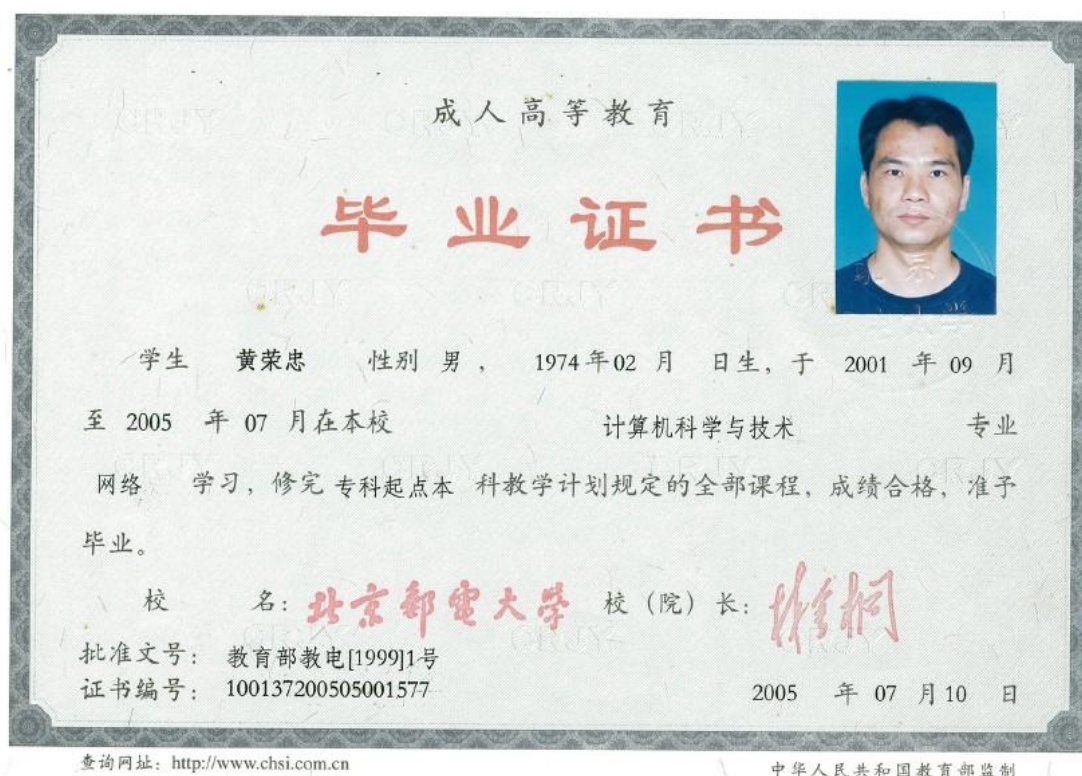 成人高等教育
毕业证书
学生 黄荣忠 性别 男， 1974年02月 日生，于 2001 年 09 月
至 2005 年 07 月在本校 计算机科学与技术 专业
网络 学习，修完 专科起点本 科教学计划规定的全部课程，成绩合格，准予
毕业。
校 名：北京邮电大学 校（院）长：
批准文号： 教育部教电[1999]1号
证书编号： 100137200505001577
2005 年 07 月 10 日
查询网址：http://www.chsi.com.cn
中华人民共和国教育部监制